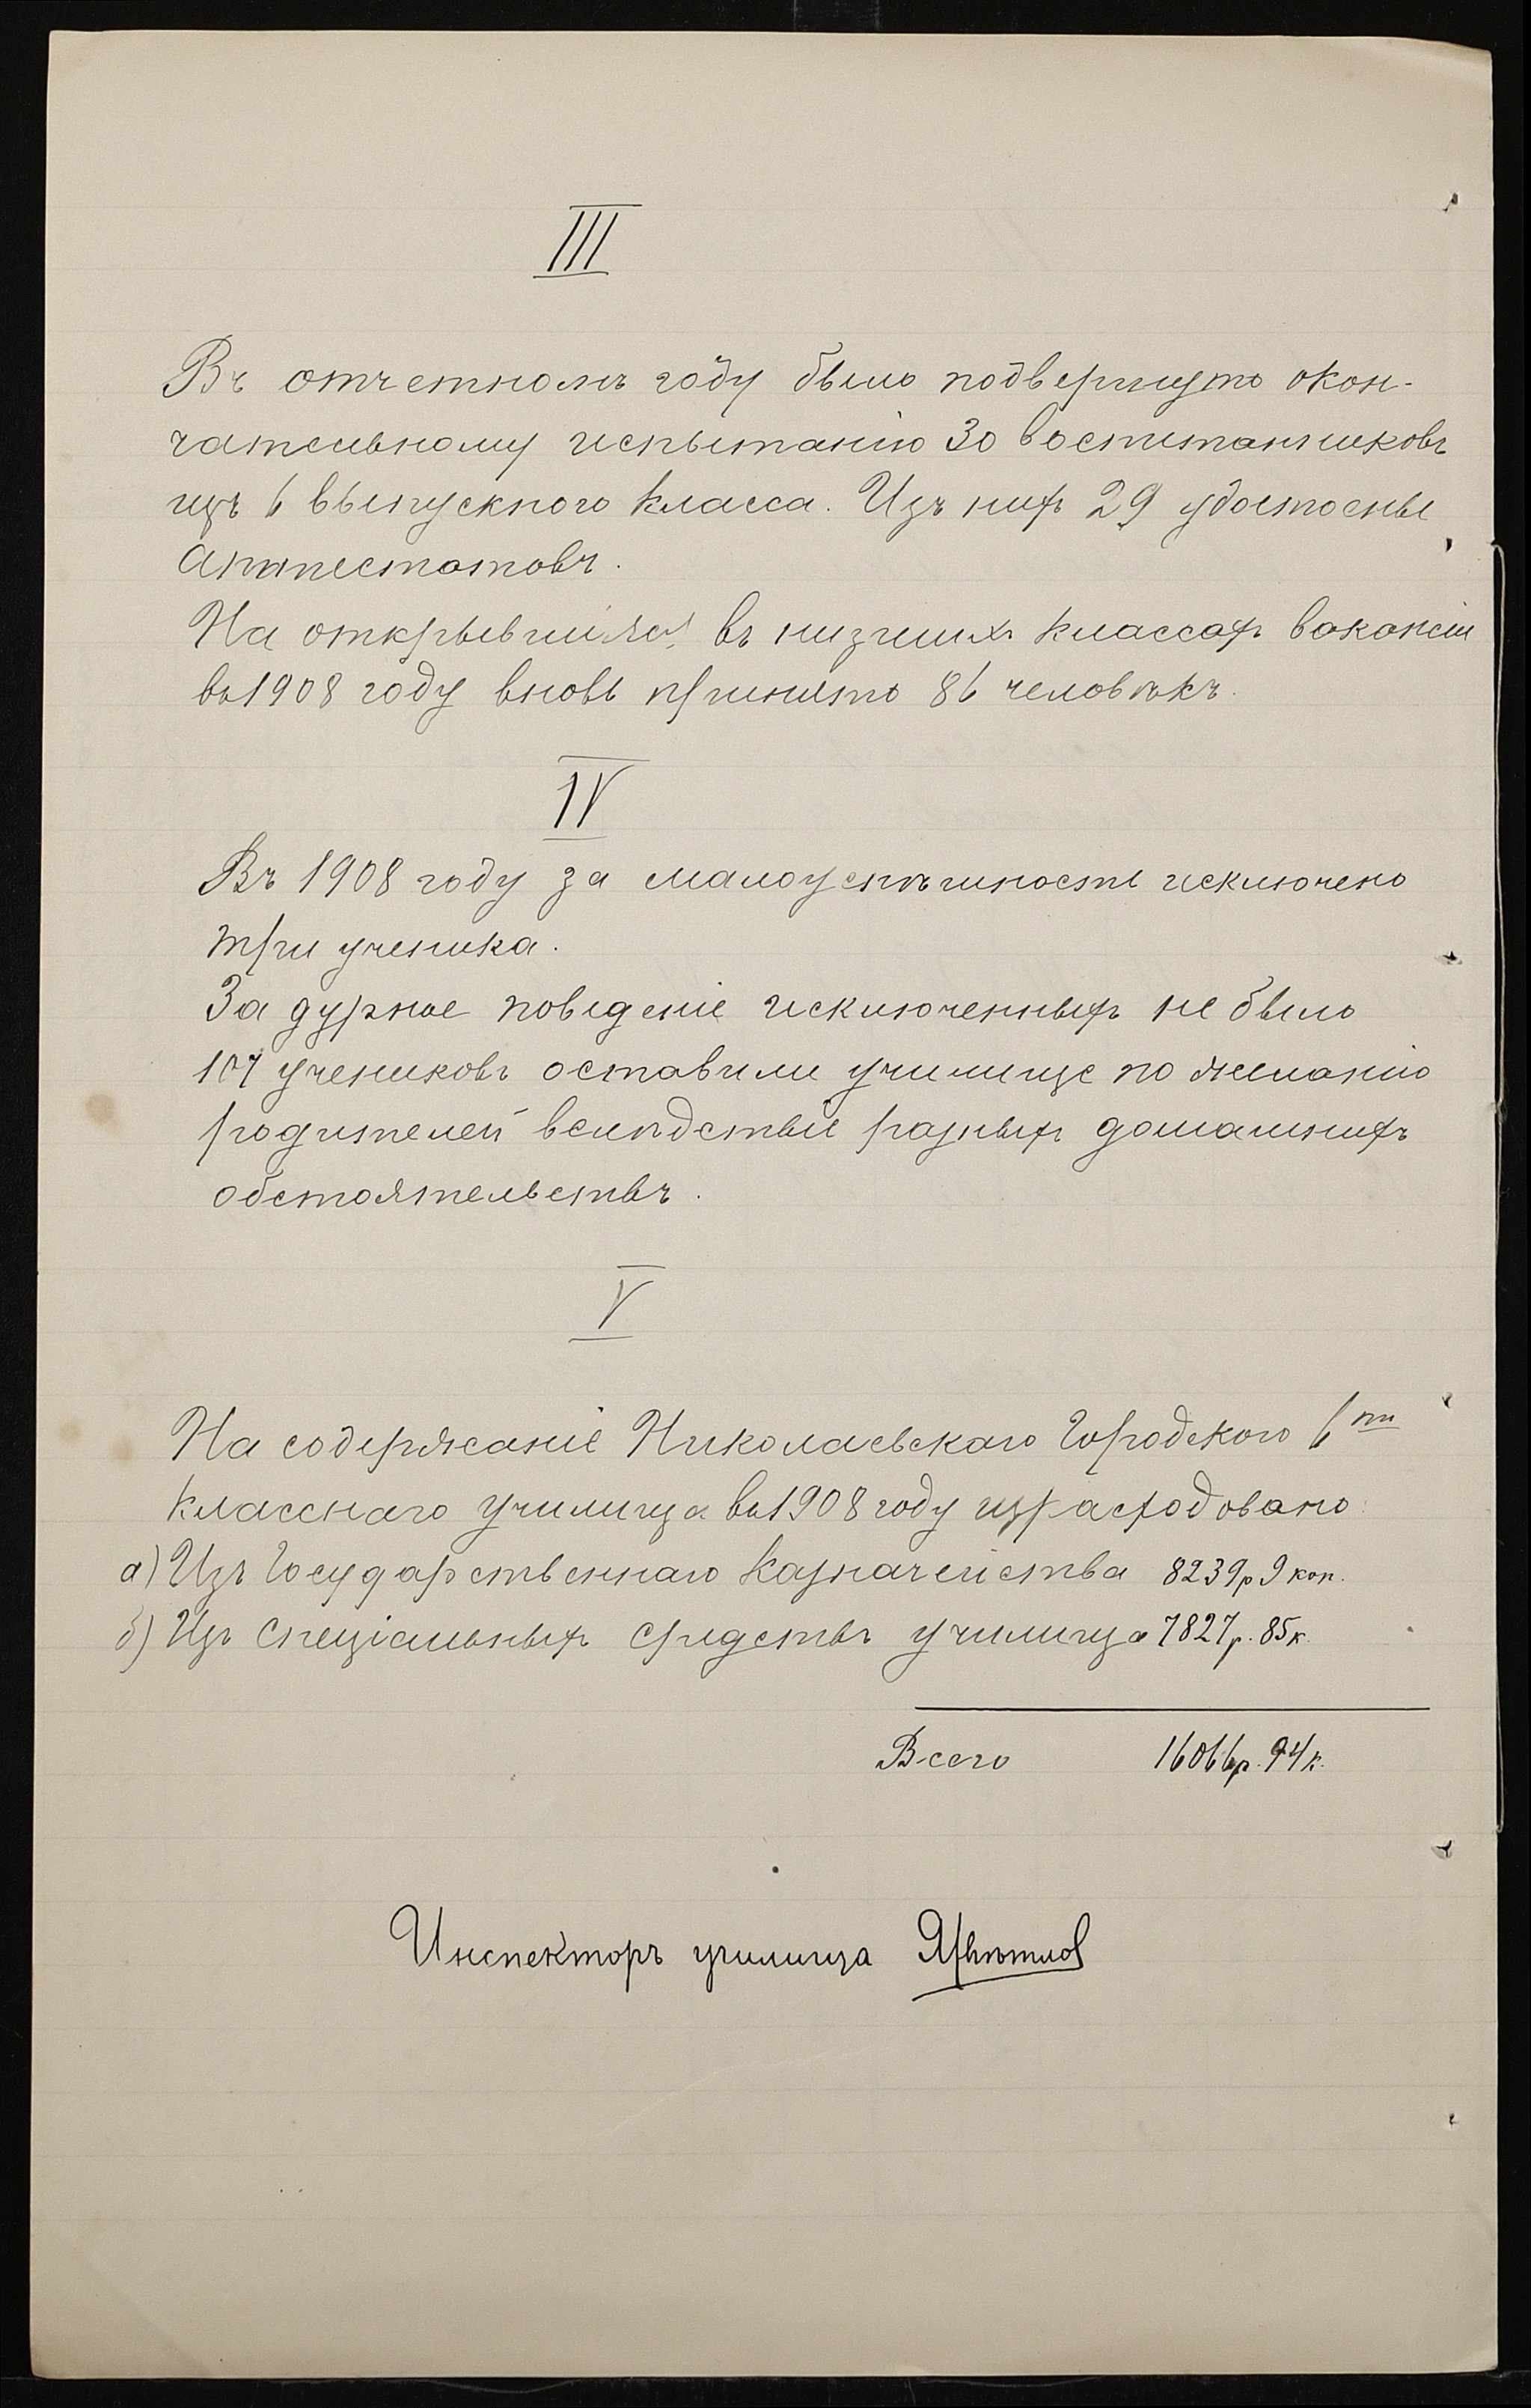 III
Въ отчетномъ году было подвергнуто окон-
чательному испытанію 30 воспитанниковъ
изъ 6 выпускного класса. Изъ нихъ 29 удостоены
Аттестатовъ.
На открывшіяся въ низшихъ классахъ вакансіи
въ 1908 году вновь принято 86 человѣкъ.
IV
Въ 1908 году за малоуспѣшность исключено
три ученика.
За дурное поведеніе исключенныхъ не было
107 учениковъ оставили училище по желанію
родителей вслѣдствіе разныхъ домашнихъ
обстоятельствъ.
V
На содержаніе Николаевскаго Городского 6ти
класснаго училища въ 1908 году израсходовано:
а) Изъ Государственнаго Казначейства 8239р 9 коп.
б) Изъ Спеціальныхъ средствъ училища 7827р. 85к.
Всего 16066р. 94к.
Инспекторъ училища